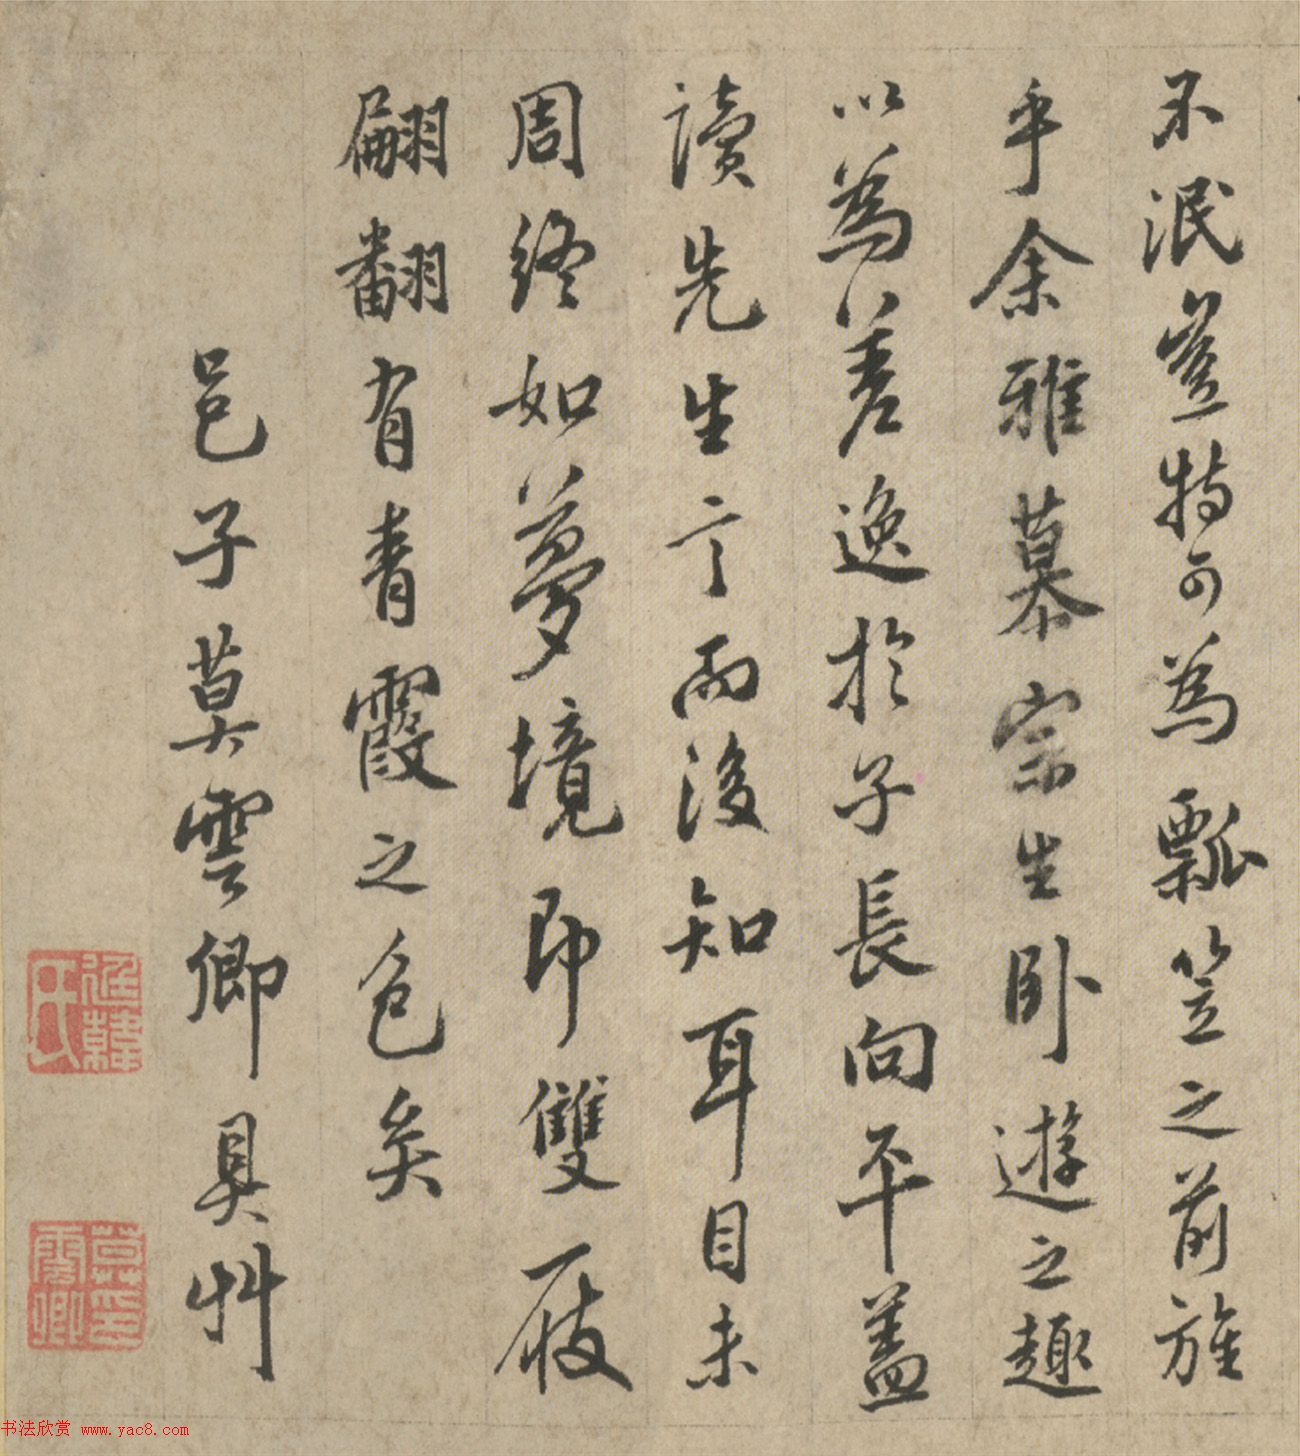 不泯豈特可為瓢笠之前旌
乎余雅慕宗生卧遊之趣
以為差逸於子長向平蓋
讀先生言而後知耳目未
周終如夢境即雙屐
翩翻有青霞之色矣
邑子莫雲卿具艸
廷韓氏
莫雲卿印
书法欣赏 www.yac8.com